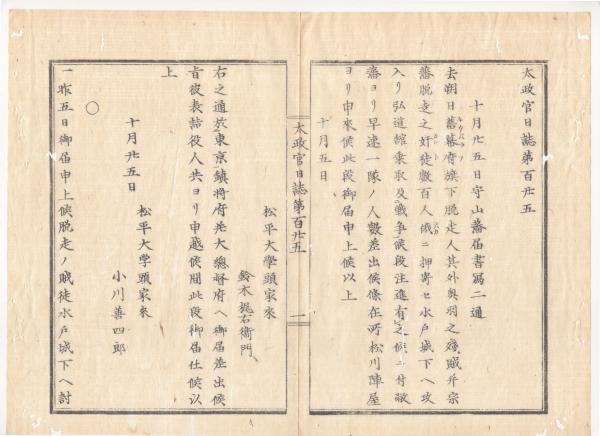 太政官日誌第百廿五
十月廿五日守山藩届書寫二通
去朔日舊幕府旗下脱走人其外奥羽之殘賊并宗
藩脱走之奸徒數百人俄ニ押寄セ水戸城下ヘ攻
入リ弘道館乘取及戰爭候段注進有之候ニ付敝
藩ヨリ早速一隊ノ人數差出候條在所松川陣屋
ヨリ申來候此段御届申上候以上
十月五日
松平大學頭家來
鈴木 右衞門
右之通於東京鎮將府并大總督府ヘ御届差出候
旨彼表詰役人共ヨリ申越候間此段御届仕候以
上
十月廿五日
松平大學頭家來
小川善四郎
○
一昨五日御届申上候脱走ノ賊徒水戸城下ヘ討
太政官日誌第百廿五
一